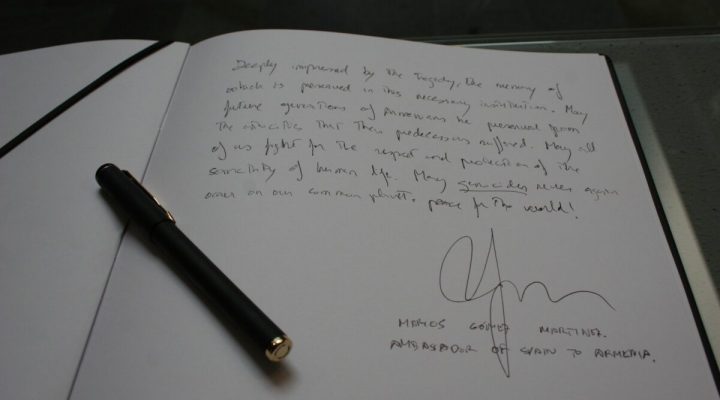 Deeply impressed by the tragedy, the memory of
which is preserved in this necessary institution. May
future generations of Armenians be preserved from
the atrocities that their predecessors suffered. May all
of us fight for the respect and protection of the
sanctity of human life. May genocides never again
occur on our common planet. peace for the world!
MARCOS GOMEZ MARTINEZ.
AMBASSADOR OF SPAIN TO ARMENIA.